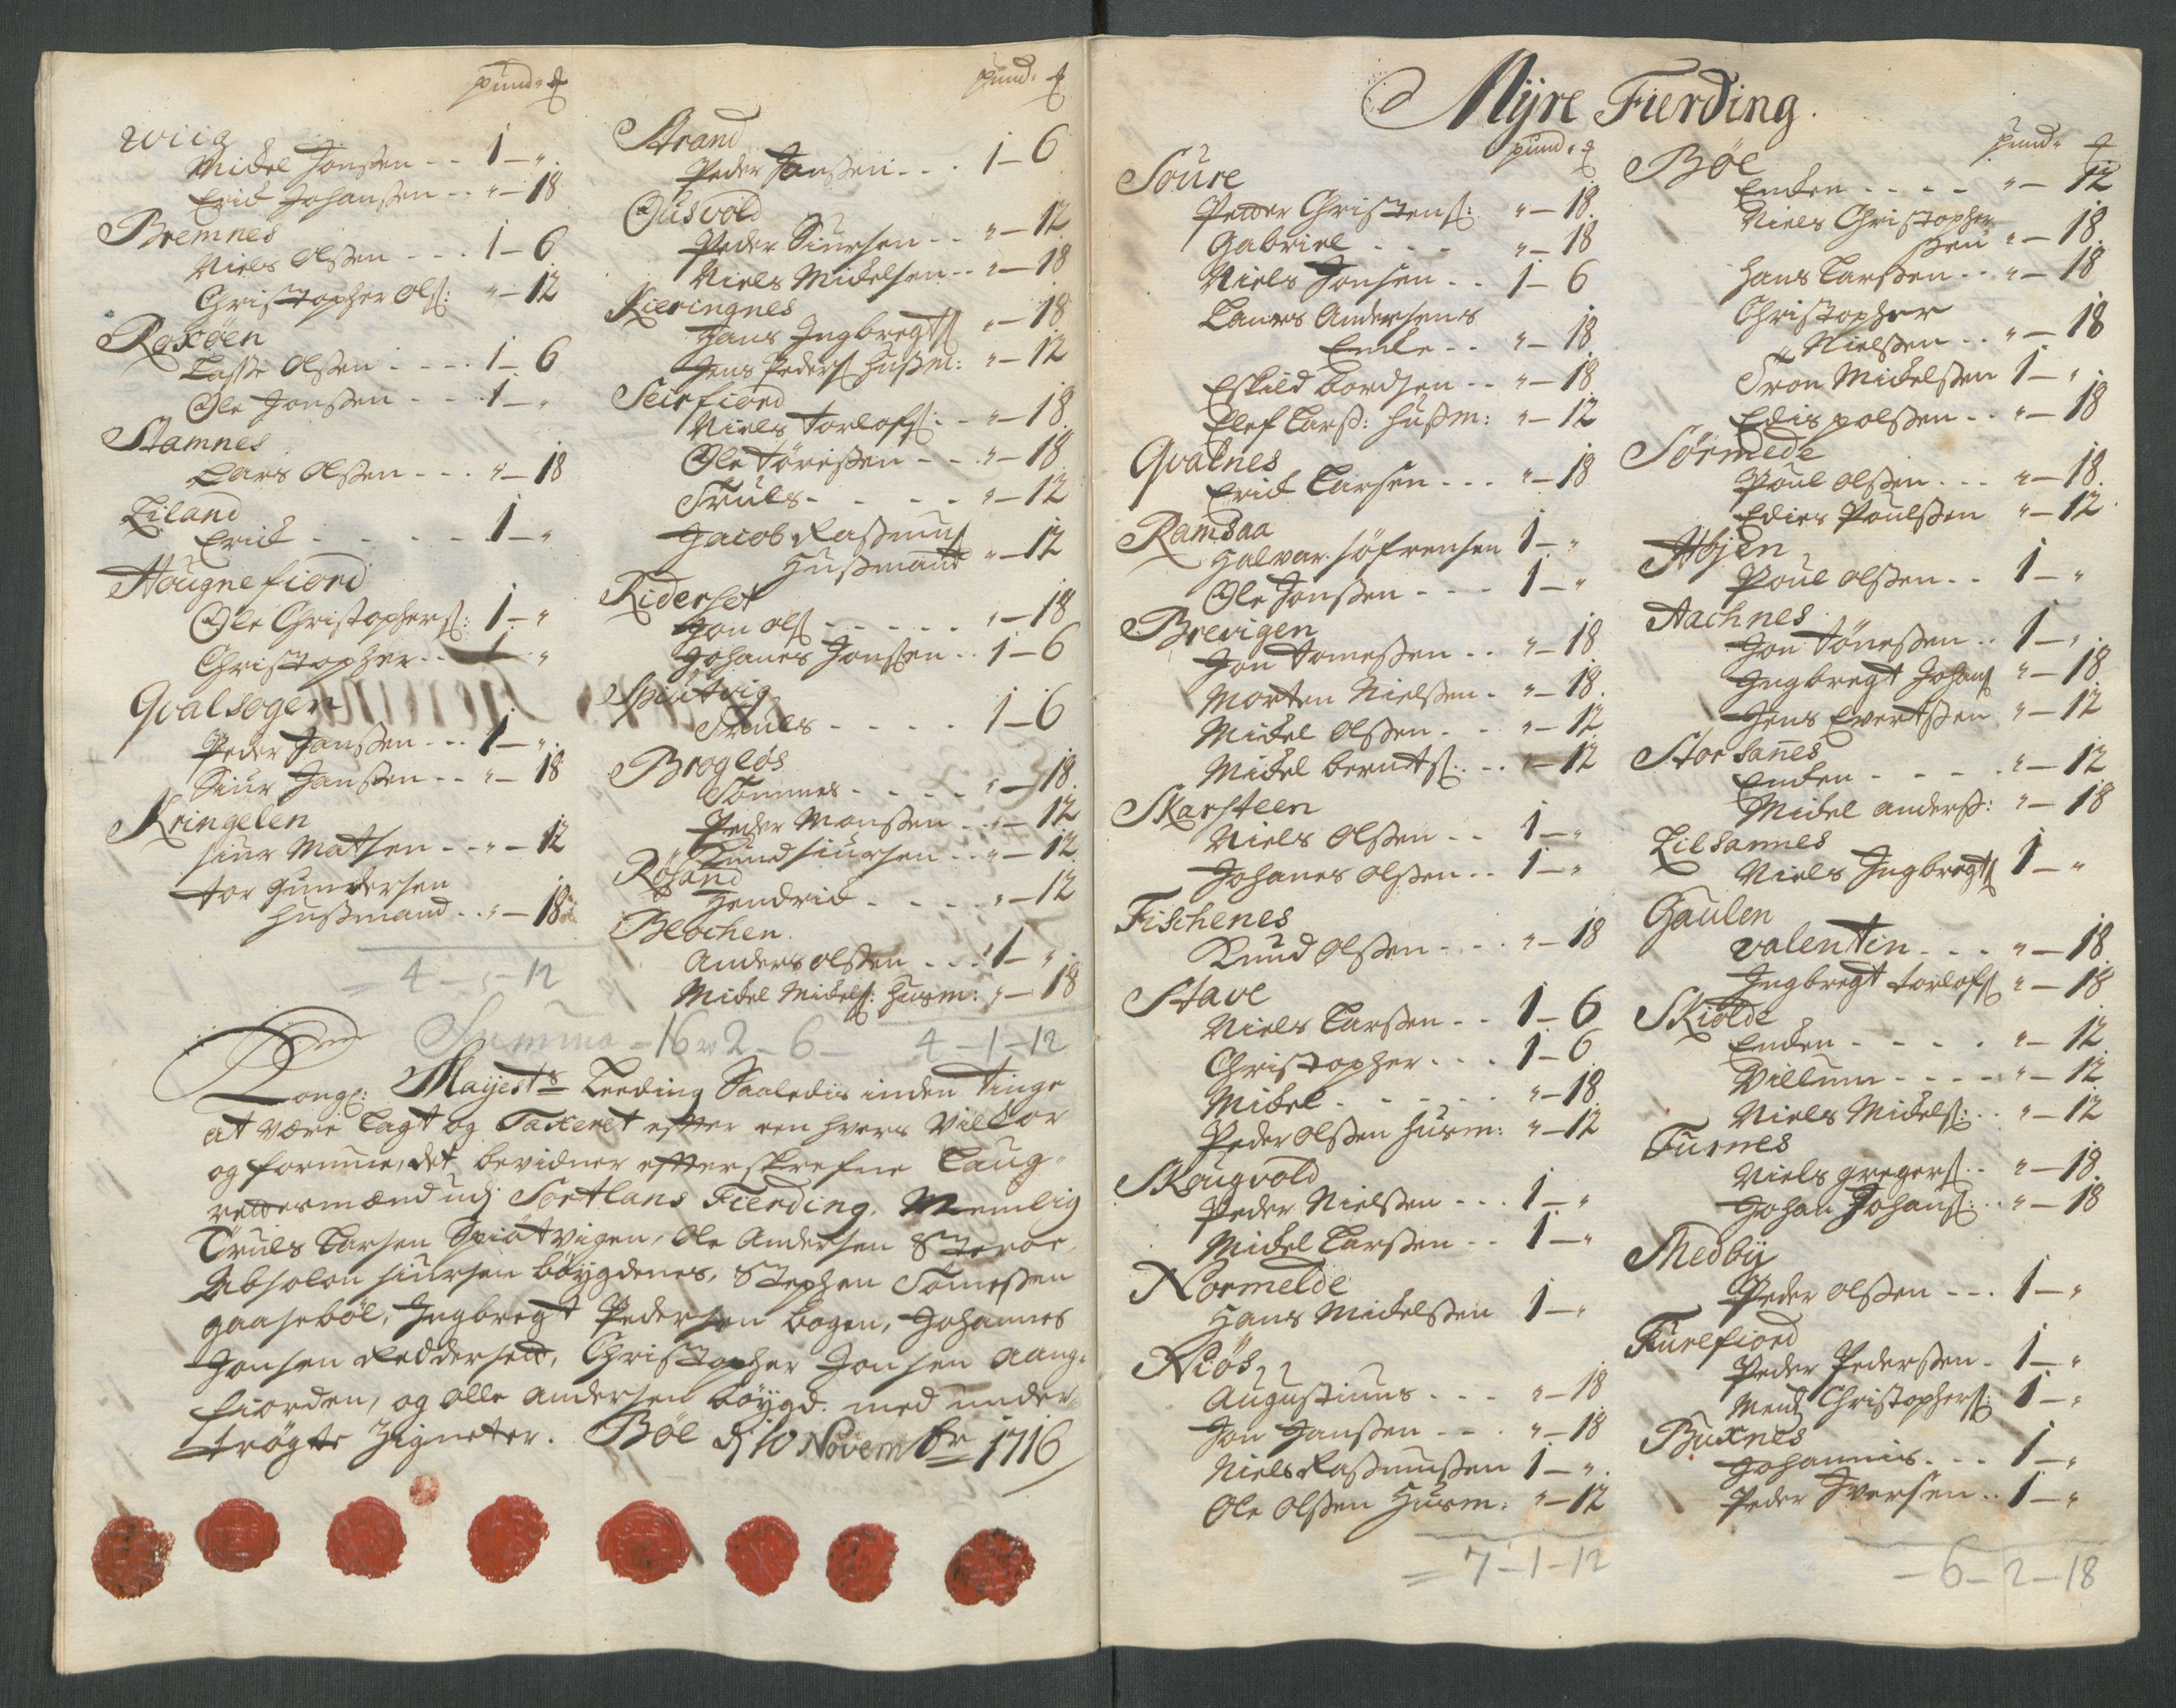 pund. ℔
wiig
Mickel Jonssen - - 1 - "
Erick Johanssen - - " - 18
Bremnes
Niels Olssen - - - 1 - 6
Christopher Ols: " - 12
Roxöen
Lasse Olssen - - - - 1 - 6
Ole Jonssen - - - 1 - "
Stamnes
Lars Olssen - - - " - 18
Liland
Erick - - - - - 1 - "
Hougnefiord
Ole Christophers: 1 - "
Christopher - - 1 - "
Qvalsogen
Peder Janssen - - - 1 - "
Siur Janssen - - " - 18
Kringelen
siur Matsen - - " - 12
tor gundersen
Hussmand - - " - 18
= 4 - " - 12
pund. ℔
Strand
Peder Janssen - - - 1 - 6
Gusvold
Peder Siursen - - " - 12
Niels Mickelsen - - " - 18
Kieringnes
Hans Ingbregts " - 18
Jens Peders Hussm: " - 12
Seirfiord
Niels torlofs: - - " - 18
Ole Törissen - - - " - 18
Truls - - - - " - 12
Jacob Rassmus
Hussmand " - 12
Riderset
Jon Ols - - - - - " - 18
Johanes Jonssen - - 1 - 6
Spiutvig
Truls - - - - - 1 - 6
Brogløs
Tommes - - - - " - 18
Peder Monssen - - " - 12
Knud siursen - - " - 12
Røsand
Hendrick - - - - " - 12
Blochen
Anders Olssen - - - 1 - "
Mickel Mickels: Husm: " - 18
Summa - 16 w 2 - 6 - 4 - 1 - 12
Kongl: Mayest:s Leeding Saaledis inden tinge
at være Lagt og Taxeret efter een hvers Vilkor
og formue, det bevidner efterskrefne Laug-
rettesmænd udj Sortlans Fierding. Nemlig
Truls Larsen Spiutvigen, Ole Andersen
Absolon siursen böygdenes, Stephen Tomessen
gaasebøl, Ingbregt Pedersen bogen, Johannes
Jonsen Reddersett, Christopher Jonsen aang-
fiorden, og Olle Andersen böygd. med under-
trögte Zigneter. Böe dj 10 Novembr 1716
Myre Fierding.
pund. ℔
Soure
Petter Christens: " - 18
Gabriel - - - " - 18
Niels Jonsen - - 1 - 6
Laures Andersens
Encke - - " - 18
Eskild bordsen - - " - 18
Elef Larss: Hussm: " - 12
Qvalnes
Erick Larsen - - - " - 18
Ramsaa
Halvar söfrensen 1 - "
Ole Jonssen - - - 1 - "
Brevigen
Jon tomessen - - " - 18
Morten Nielssen - " - 18
Mickel Olssen - - " - 12
Mickel berntz: - - " - 12
Skarsteen
Niels Olssen - - 1 - "
Johanes Olssen - - 1 - "
Fischenes
Knud Olssen - - - " - 18
Stave
Niels Larssen - - 1 - 6
Christopher - - - 1 - 6
Mickel - - - - - " - 18
Peder Olssen Husm: " - 12
Skougvold
Peder Nielssen - - - 1 - "
Mickel Larssen - - 1 - "
Normelde
Hans Mickelssen 1 - "
Niös
Augustinus - - - " - 18
Jon Janssen - - - " - 18
Niels Rassmussen 1 - "
Ole Olssen Husm: " - 12
= 7 - 1 - 12
pund. ℔
Böe
Encken - - - - " - 12
Niels Christopher
ssen " - 18
Hans Larssen - - " - 18
Christopher
Nielssen - - " - 18
Tron Mickelssen 1 - "
Edis polssen - - " - 18
Sörmede
Poul Olssen - - - " - 18
Edies Poulssen " - 12
Abjen
Poul Olssen - - 1 - "
Aachnes
Jon Tönessen - - 1 - "
Ingbregt Johans " - 18
Jens Evertssen " - 12
Storsanes
Encken - - - - " - 12
Mickel anderss: " - 18
Lilsannes
Niels Ingbregts 1 - "
Gaulen
valentin - - - " - 18
Ingbregt torlofs " - 18
Skiolde
Encken - - - - - " - 12
Villum - - - - " - 12
Niels Mickels: - - " - 12
Turnes
Niels gregers: - " - 18
Johan Johans: - - " - 18
Medby
Peder Olssen - - - 1 - "
Furefiord
Peder Pederssen - 1 - "
Mentz Christophers: 1 - "
Buxnes
Johannis - - - 1 - "
Peder Iversen - - 1 - "
- 6 - 2 - 18